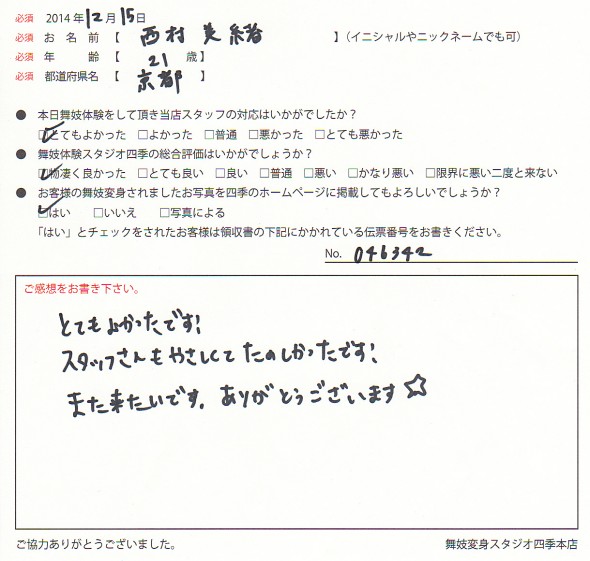 必須 2014年12月15日
必須 お名前【 西村 美緒 】(イニシャルやニックネームでも可)
必須 年齢【 21 歳】
必須 都道府県名【 京都 】
● 本日舞妓体験をして頂き当店スタッフの対応はいかがでしたか?
□とてもよかった □よかった □普通 □悪かった □とても悪かった
● 舞妓体験スタジオ四季の総合評価はいかがでしょうか?
□物凄く良かった □とても良い □良い □普通 □悪い □かなり悪い □限界に悪い二度と来ない
● お客様の舞妓変身されましたお写真を四季のホームページに掲載してもよろしいでしょうか?
□はい □いいえ □写真による
「はい」とチェックをされたお客様は領収書の下記にかかれている伝票番号をお書きください。
No. 046342
ご感想をお書き下さい。
とてもよかったです!
スタッフさんもやさしくてたのしかったです!
また来たいです。ありがとうございます☆
ご協力ありがとうございました。
舞妓変身スタジオ四季本店